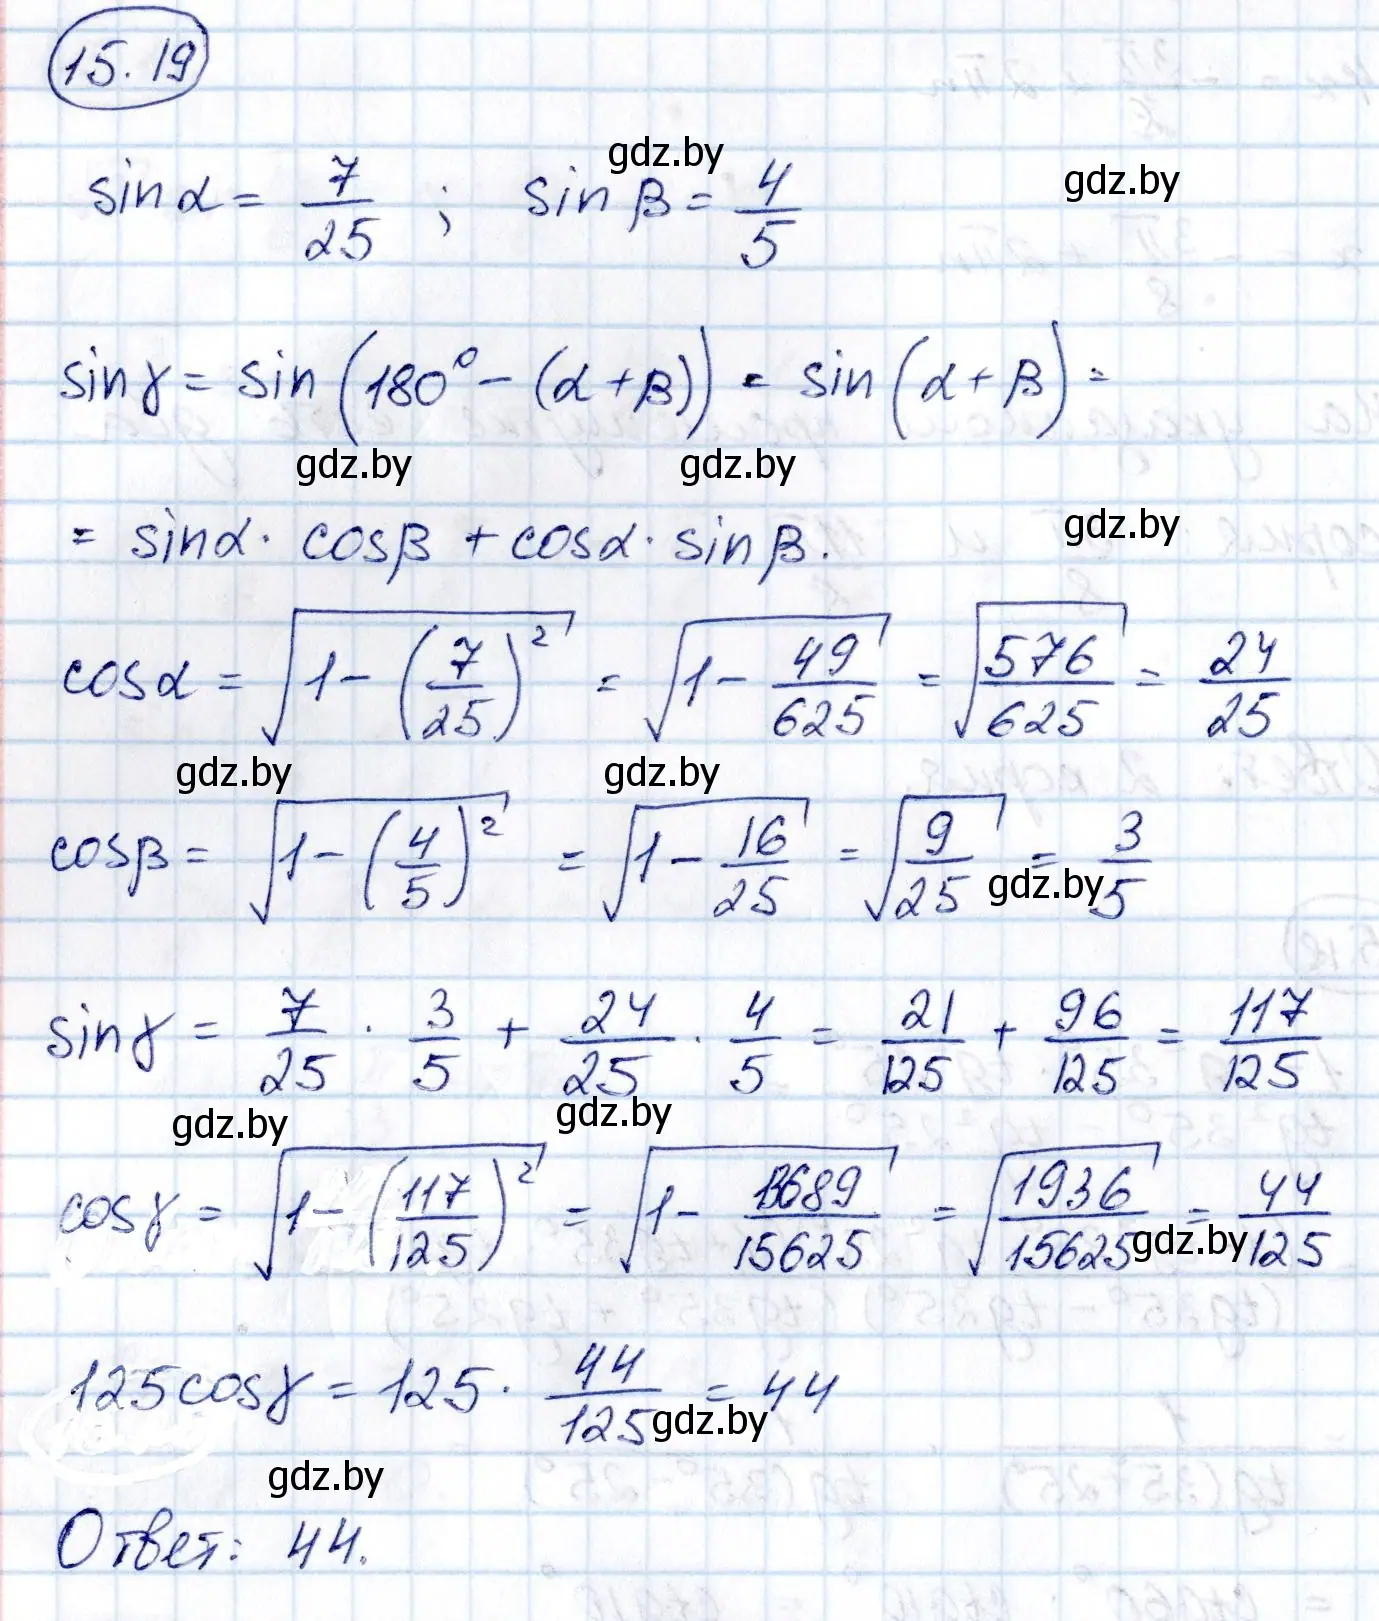 15.19
gdz.by
sin α = 7/25 ; sin β = 4/5 gdz.by
sin γ = sin (180° − (α + β)) = sin (α + β) =
gdz.by gdz.by
= sin α · cos β + cos α · sin β. gdz.by
cos α = √(1 − (7/25)²) = √(1 − 49/625) = √(576/625) = 24/25
gdz.by gdz.by
cos β = √(1 − (4/5)²) = √(1 − 16/25) = √(9/25) = 3/5
gdz.by
sin γ = 7/25 · 3/5 + 24/25 · 4/5 = 21/125 + 96/125 = 117/125
gdz.by gdz.by
cos γ = √(1 − (117/125)²) = √(1 − 13689/15625) = √(1936/15625) = 44/125
gdz.by
125 cos γ = 125 · 44/125 = 44
gdz.by
gdz.by
Ответ: 44.